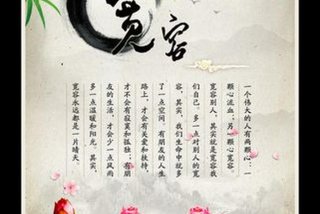 宽容
一个伟大的人有两颗心：一
颗心流血；另一颗心宽容。
宽容别人，其实就是宽容我
们自己。多一点对别人的宽
容，其实，我们生命中就多
了一点空间。有朋友的人生
路上，才会有关爱和扶持，
才不会有寂寞和孤独；有朋
友的生活，才会少一点风雨
多一点温暖和阳光。其实，
宽容永远都是一片晴天